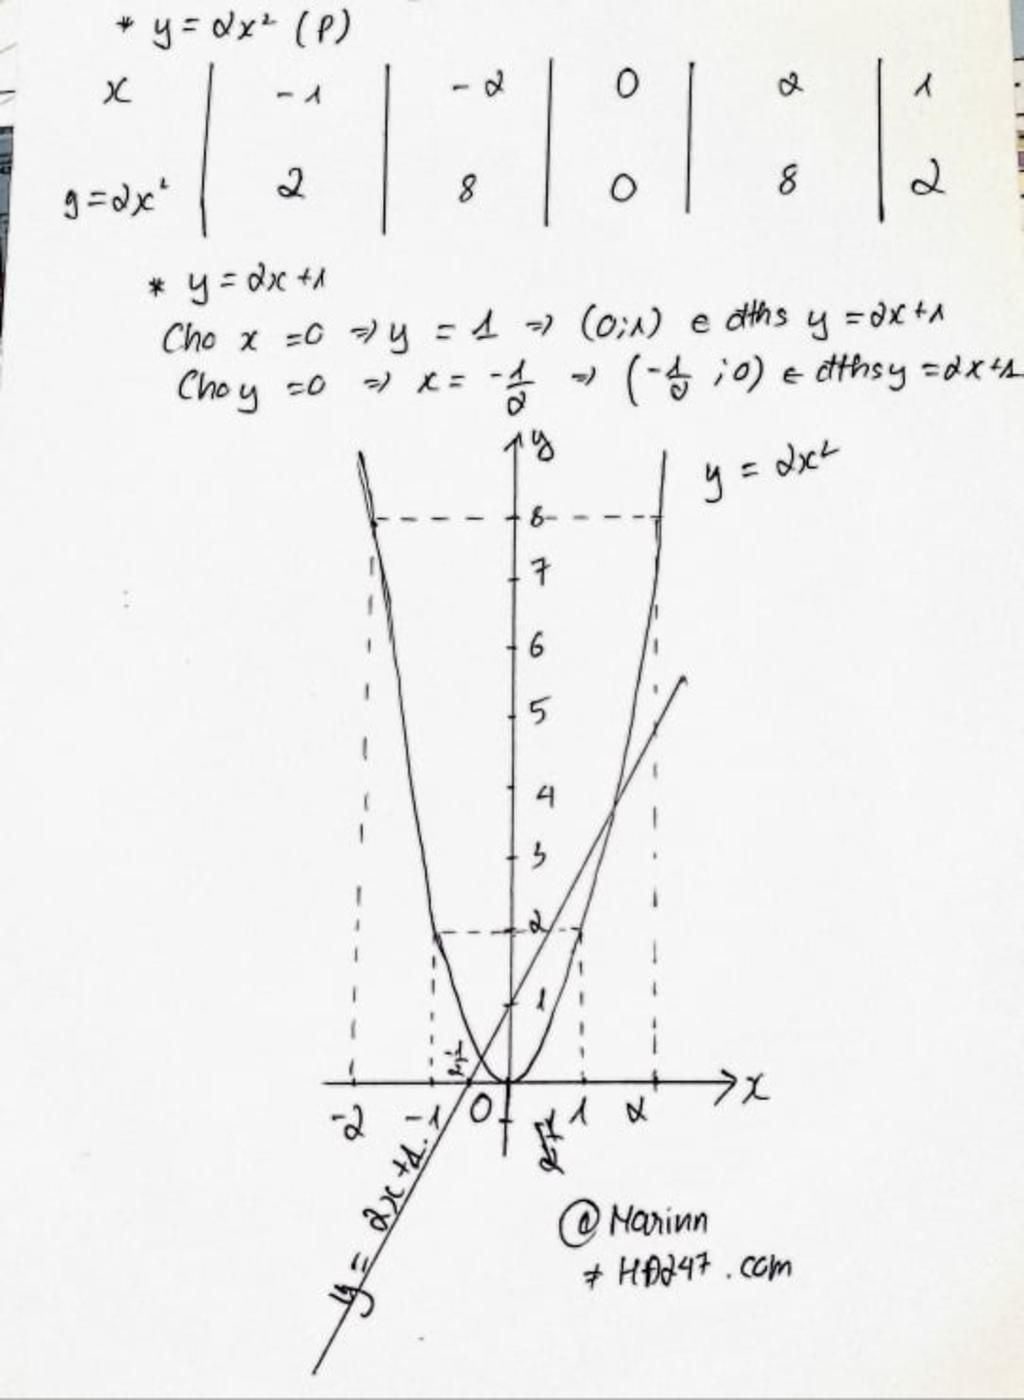 * y = 2x² (P)
x | -1 | -2 | 0 | 2 | 1
y=2x² | 2 | 8 | 0 | 8 | 2
* y = 2x+1
Cho x =0 => y = 1 => (0;1) ∈ đths y =2x+1
Cho y =0 => x = -1/2 => (-1/2 ;0) ∈ đths y =2x+1
y
y = 2x²
8
7
6
5
4
3
2
1
-1/2
-2 -1 O 1 2 x
y = 2x+1
@Marinn
≠ HĐ247.com